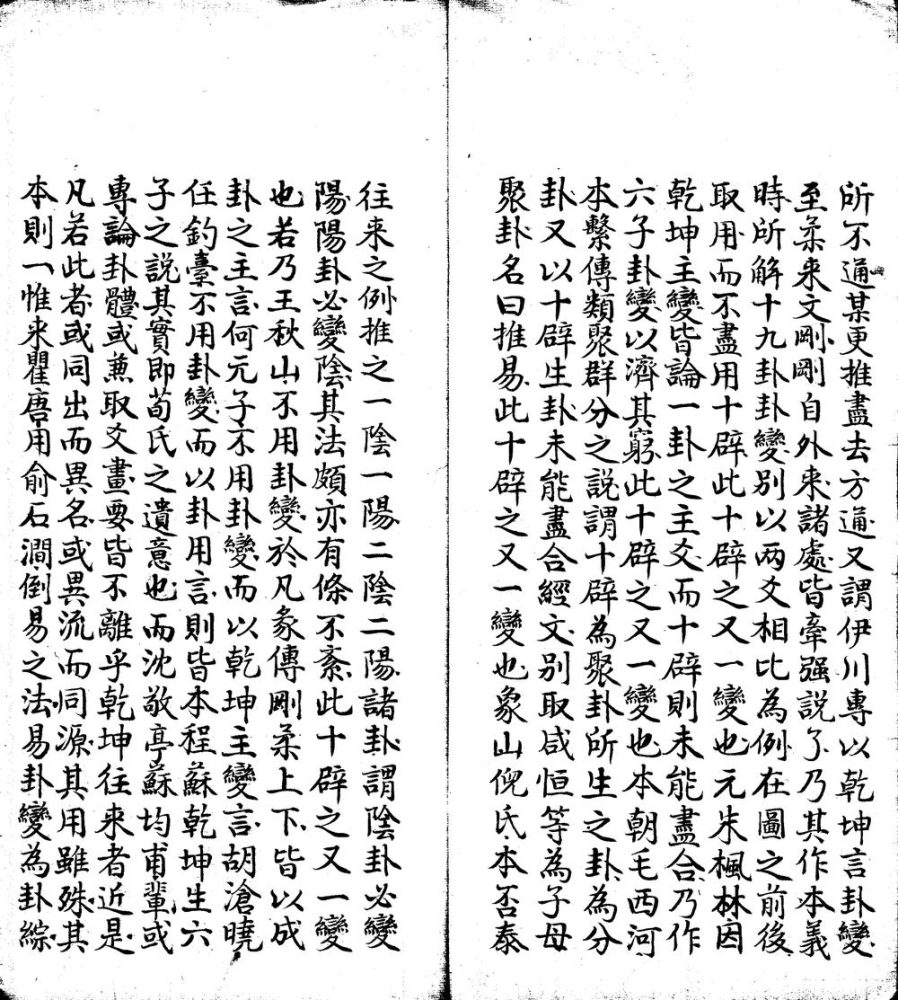 所不通某更推盡去方通又謂伊川專以乾坤言卦變
至柔来文剛剛自外来諸處皆牽强説了乃其作本義
時所解十九卦卦變别以两爻相比為例在圖之前後
取用而不盡用十辟此十辟之又一變也元朱楓林因
乾坤主變皆論一卦之主爻而十辟則未能盡合乃作
六子卦變以濟其窮此十辟之又一變也本朝毛西河
本繫傳類聚群分之説謂十辟為聚卦所生之卦為分
卦又以十辟生卦未能盡合經文别取咸恒等為子母
聚卦名曰推易此十辟之又一變也象山倪氏本否泰
往来之例推之一陰一陽二陰二陽諸卦謂陰卦必變
陽陽卦必變陰其法頗亦有條不紊此十辟之又一變
也若乃王秋山不用卦變於凡彖傳剛柔上下皆以成
卦之主言何元子不用卦變而以乾坤主變言胡滄曉
任釣臺不用卦變而以卦用言則皆本程蘇乾坤生六
子之説其實即荀氏之遺意也而沈敬亭蘇均甫輩或
專論卦體或兼取爻畫要皆不離乎乾坤往来者近是
凡若此者或同出而異名或異流而同源其用雖殊其
本則一惟来瞿唐用俞石澗倒易之法易卦變為卦綜